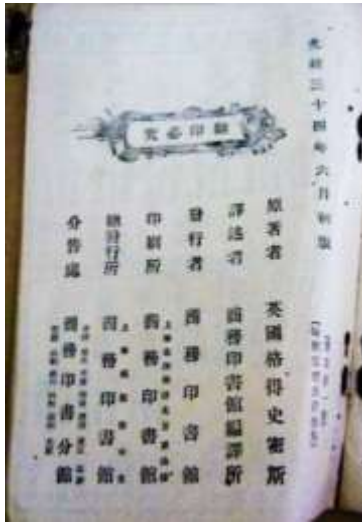 光緒三十四年六月初版
翻印必究
原著者 英國格得史密斯
譯述者 商務印書館編譯所
發行者 商務印書館
印刷所 商務印書館
總發行所 商務印書館
分售處 商務印書分館